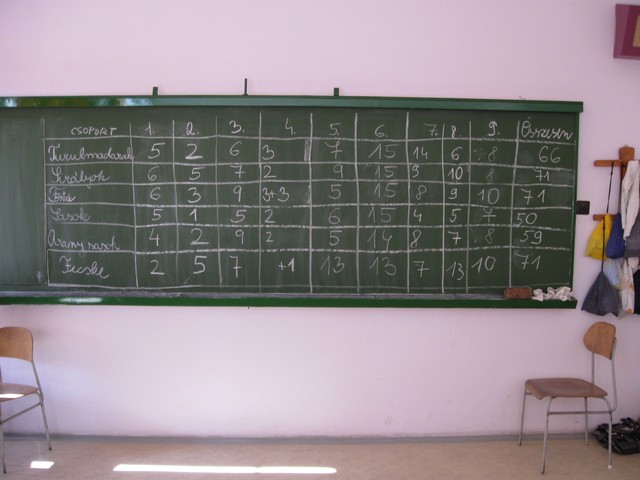 CSOPORT 1. 2. 3. 4. 5. 6. 7. 8. 9. Összesen
Turulmadarak 5 2 6 3 7 15 14 6 8 66
Királyok 6 5 7 2 9 15 9 10 8 71
6 3 9 3+3 5 15 8 9 10 71
Sasok 5 1 5 2 6 15 4 5 7 50
Arany sasok 4 2 9 2 5 14 8 7 8 59
Fecske 2 5 7 +1 13 13 7 13 10 71